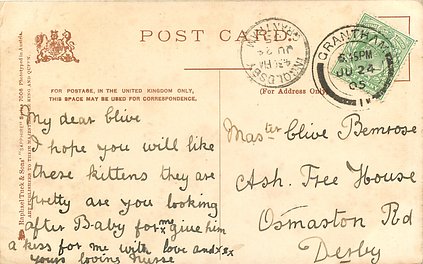 POST CARD.
FOR POSTAGE, IN THE UNITED KINGDOM ONLY,
THIS SPACE MAY BE USED FOR CORRESPONDENCE.
(For Address Only)
GRANTHAM
6.45PM
JU 24
05
INGOLDSBY
GRANTHAM
JU 23
Raphael Tuck & Sons'
My dear Clive
I hope you will like
these kittens they are
pretty are you looking
after Baby for me give him
a kiss for me with love and x x x
yours loving Nurse
Master Clive Bemrose
Ash. Tree House
Osmaston Rd
Derby